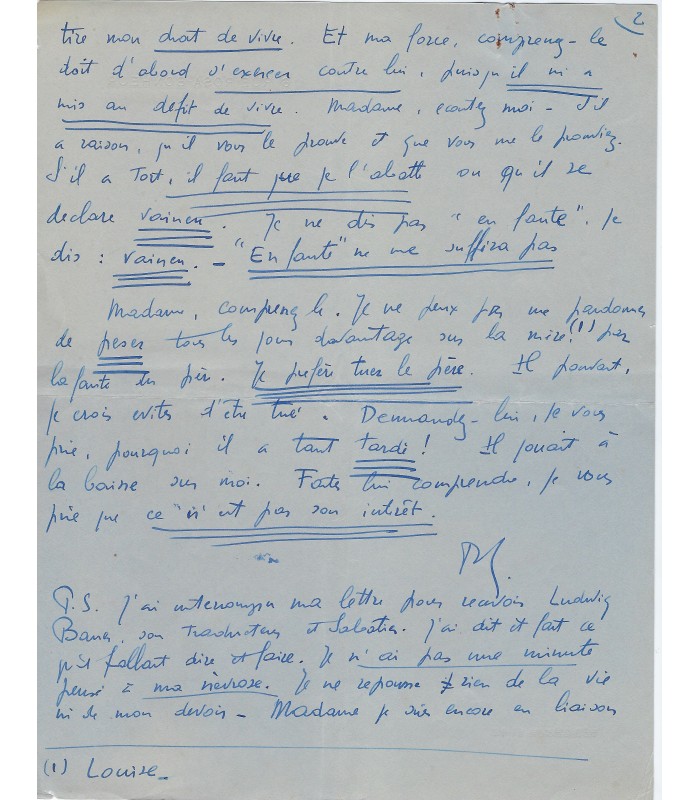 2
tire mon droit de vivre. Et ma force, comprenez-le
doit d'abord s'exercer contre lui, puisqu'il m'a
mis au défit de vivre. Madame, ecoutez moi - S'il
a raison, qu'il vous le prouve et que vous me le prouviez.
S'il a Tort, il faut que je l'abatte ou qu'il se
declare vaincu. Je ne dis pas "en faute". Je
dis : vaincu. - "En faute" ne me suffira pas
Madame, comprenez le. Je ne peux pas me pardonner
de peser tous les jours davantage sur la mère (1) par
la faute du père. Je préfère tuer le père. Il pouvait,
je crois eviter d'être tué. Demandez-lui, je vous
prie, pourquoi il a tant tardé ! Il jouait à
la baisse sur moi. Faites lui comprendre, je vous
prie que ce n'est pas son intérêt.
P.S. J'ai interrompu ma lettre pour recevoir Ludwig
son traducteur et J'ai dit et fait ce
qu'il fallait dire et faire. Je n'ai pas une minute
pensé à ma névrose. Je ne repousse rien de la vie
ni de mon devoir - Madame je suis encore en liaison
(1) Louise -